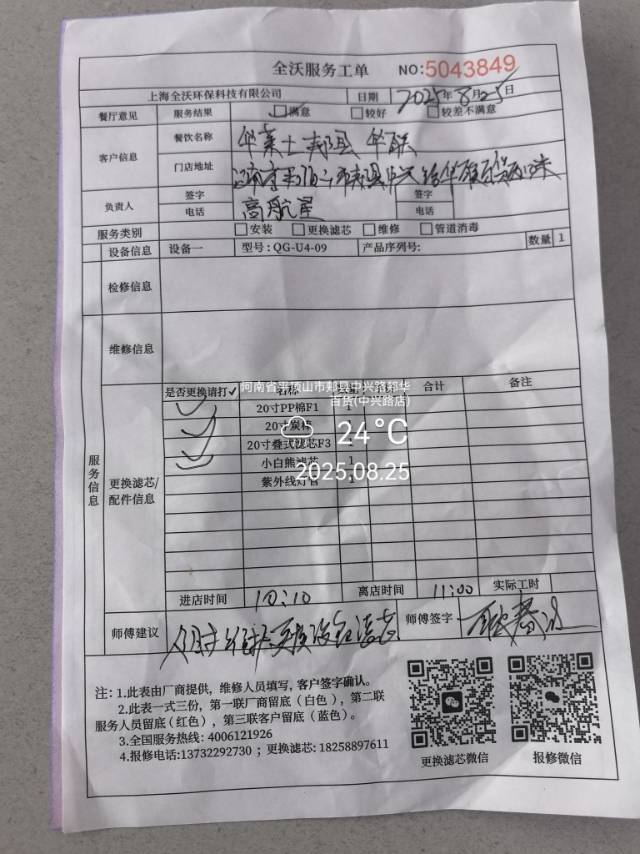 全沃服务工单 NO:5043849
上海全沃环保科技有限公司 日期 2025年8月25日
餐厅意见 服务结果 满意 较好 较差不满意
客户信息 餐饮名称 华莱士郏县华联
门店地址
负责人 签字 高航星 签字
电话 电话
服务类别 安装 更换滤芯 维修 管道消毒
设备信息 设备一 型号：QG-U4-09 产品序列号: 数量 1
检修信息
服务信息
维修信息
更换滤芯/配件信息
是否更换请打✓ 名称 合计 备注
20寸PP棉F1 1
20寸炭棒
20寸叠式滤芯F3
小白熊滤芯 1
紫外线灯管
河南省平顶山市郏县中兴路郏华
百货(中兴路店)
24°C
2025.08.25
进店时间 10:10 离店时间 11:00 实际工时
师傅建议 师傅签字
注：1.此表由厂商提供，维修人员填写，客户签字确认。
2.此表一式三份，第一联厂商留底（白色），第二联
服务人员留底(红色），第三联客户留底（蓝色）。
3.全国服务热线: 4006121926
4.报修电话:13732292730；更换滤芯: 18258897611
更换滤芯微信 报修微信